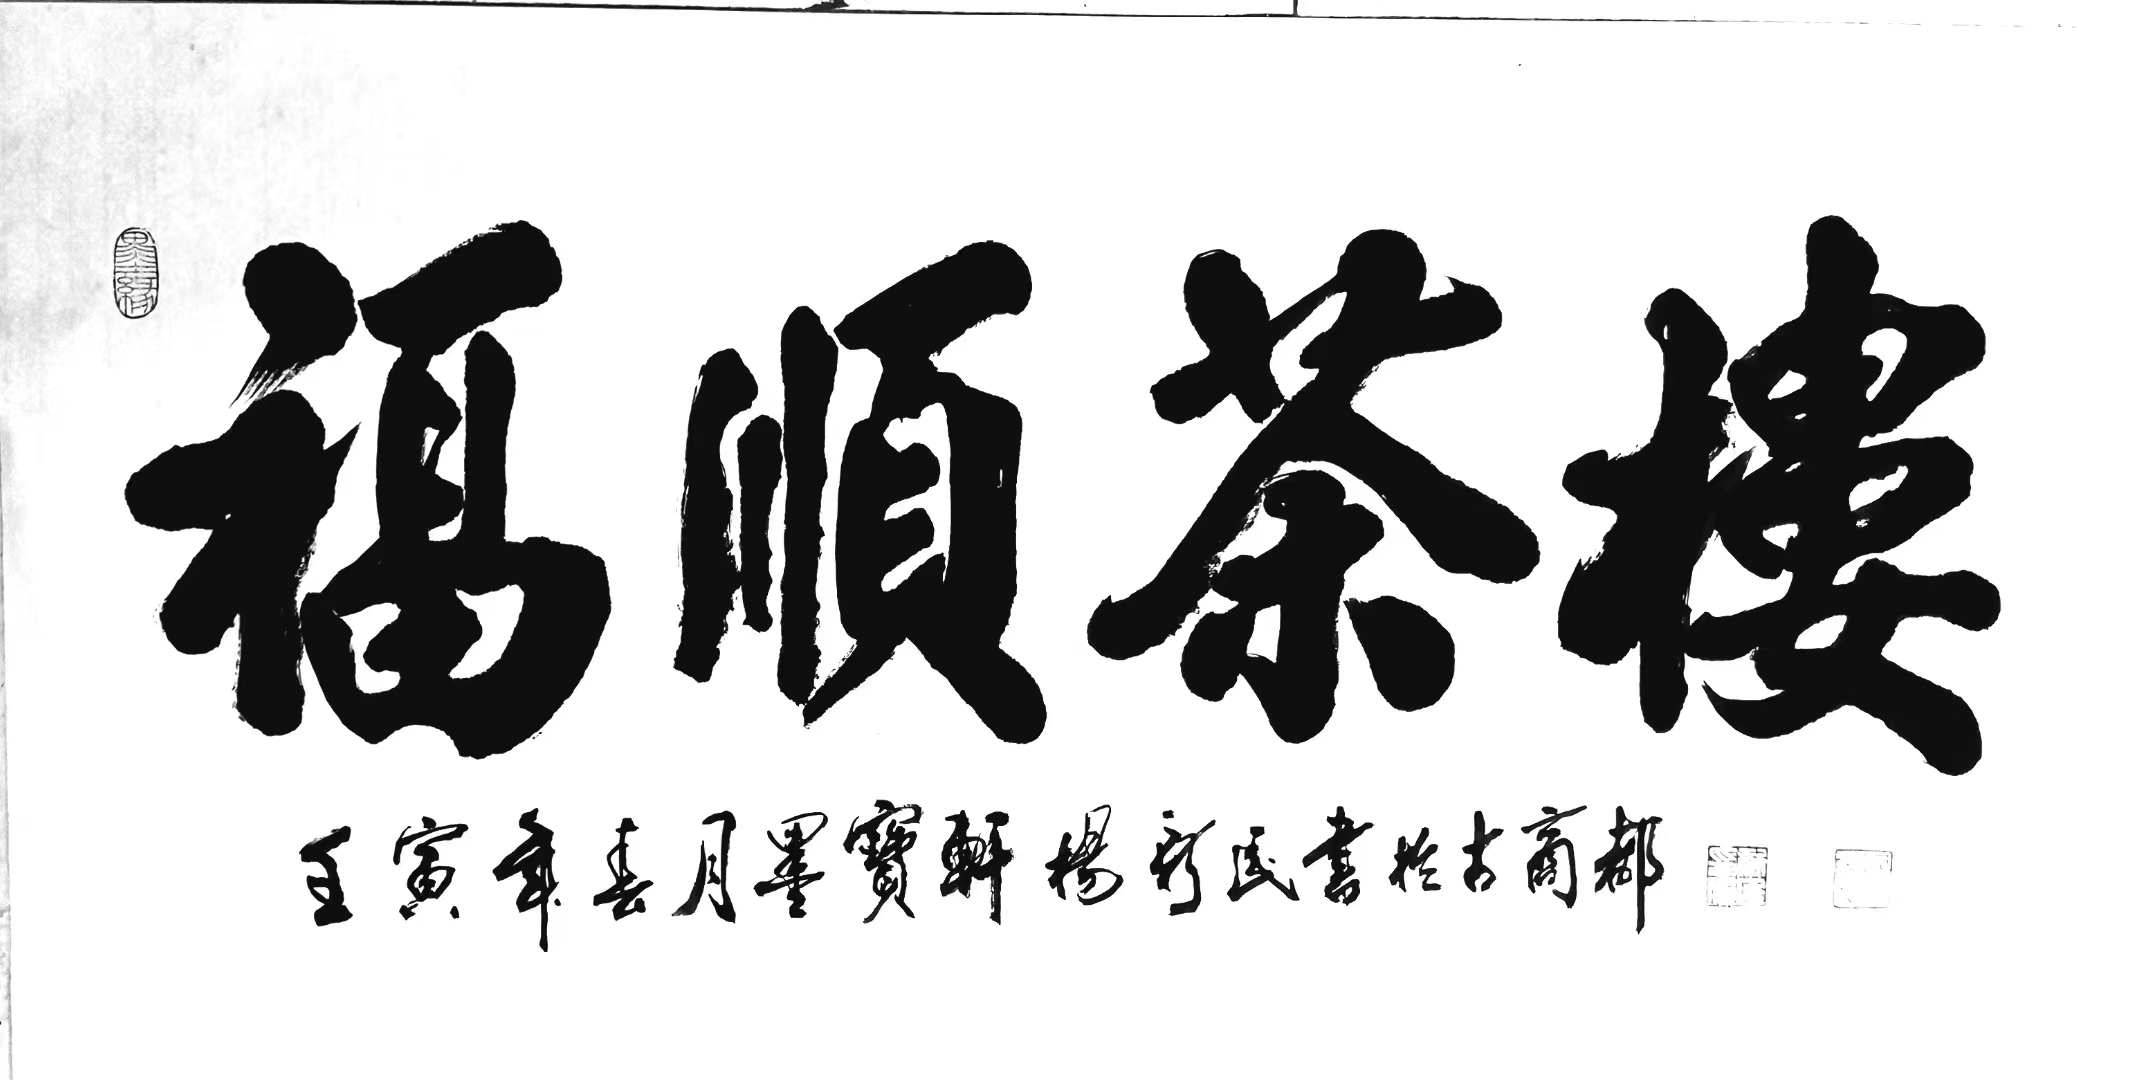 福順茶樓
壬寅年春月墨寶軒楊新民書於古商都
墨緣